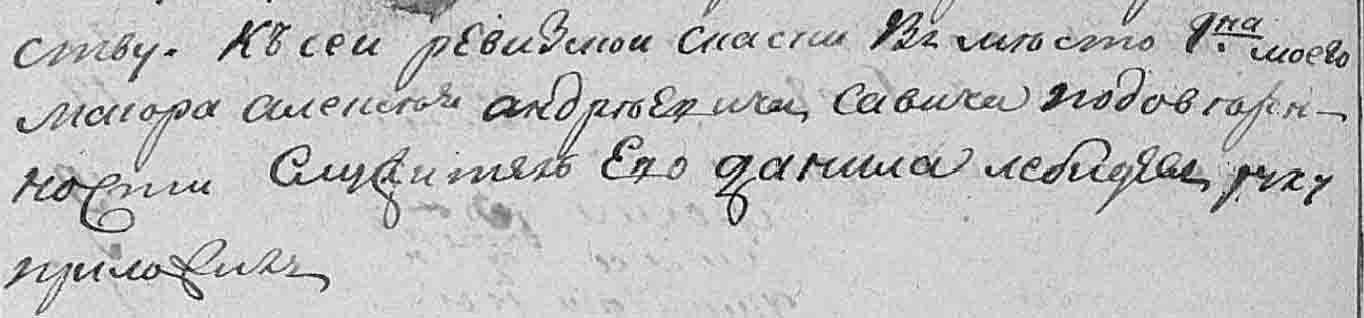 ству. Къ сей ревизкои скаски Въ мѣсто Г:на моего
маиора алексѣя андрѣевича савича по доверен-
ности Служитель Его данила лебидевъ руку
приложилъ